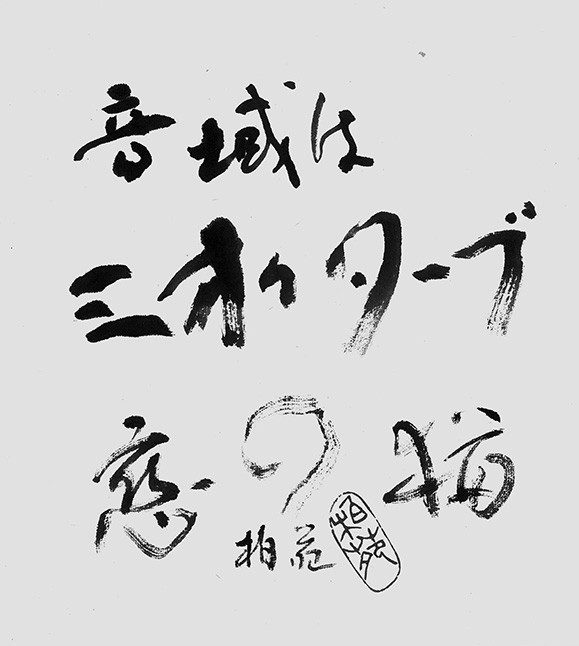 音域は
三オクターブ
恋の猫
柏苑